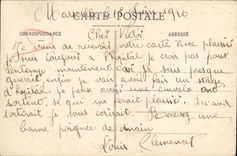 Marseille le 18 Juin 1910
CARTE POSTALE
CORRESPONDANCE
ADRESSE
Cher Victor
Je viens de recevoir votre carte avec plaisir
Je suis toujours à l'hopital je crois pas pour
longtemps maintenant car je suis presque
guérit enfin je vais avoir fait un stage
d'hopital je pense avoir une convalo en
sortant, se qui me ferait plaisir. Quand
sortirait je vous écrirait. Recevez une
bonne poignée de main
Louis Clément